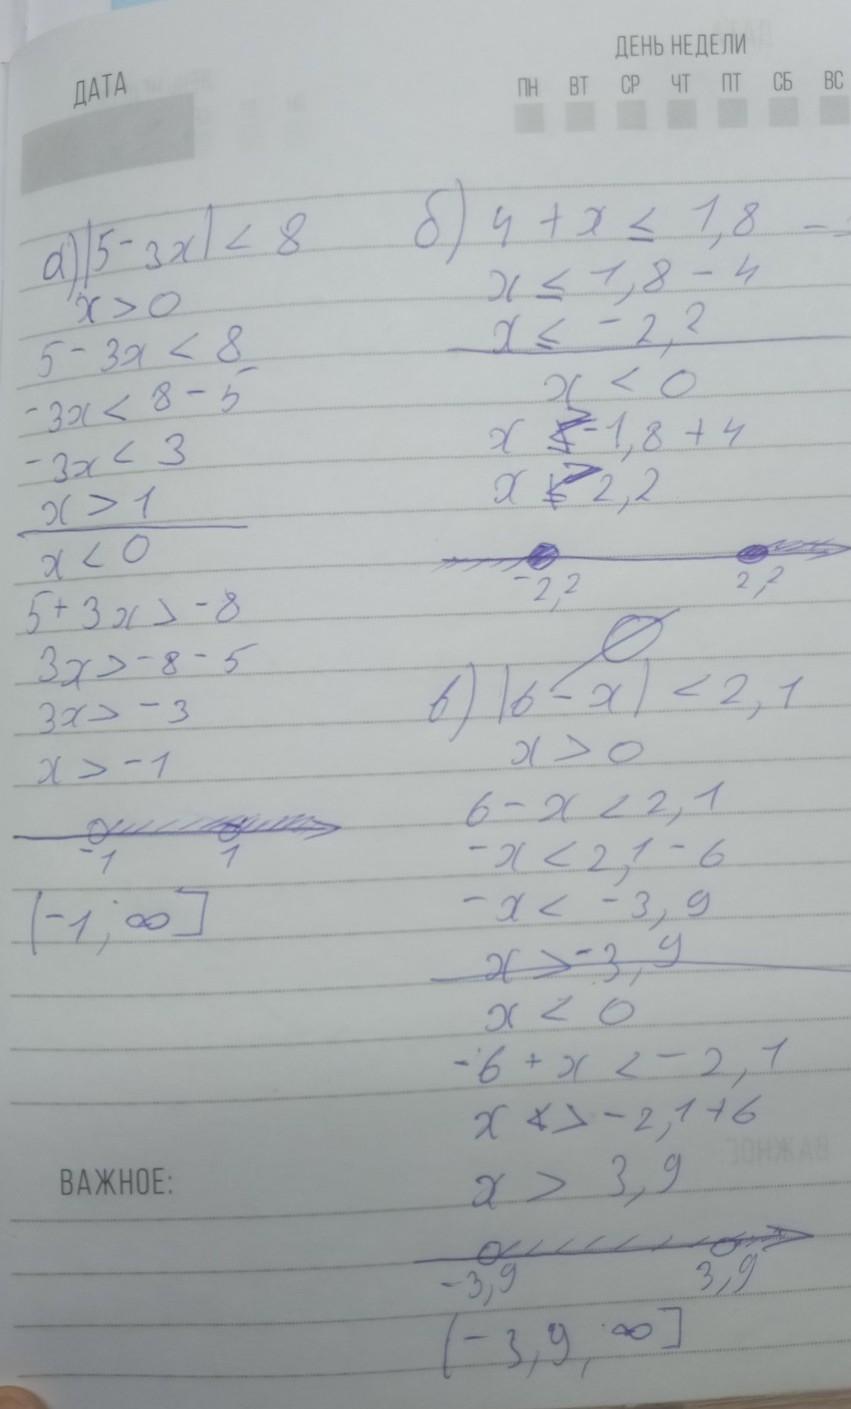 ДАТА
ДЕНЬ НЕДЕЛИ
ПН ВТ СР ЧТ ПТ СБ ВС
а) |5 - 3x| < 8
x > 0
5 - 3x < 8
-3x < 8 - 5
-3x < 3
x > 1
x < 0
5 + 3x > -8
3x > -8 - 5
3x > -3
x > -1
-1 1
(-1; ∞]
ВАЖНОЕ:
б) 4 + x ≤ 1,8
x ≤ 1,8 - 4
x ≤ -2,2
x < 0
x ≥ -1,8 + 4
x ≥ 2,2
-2,2 2,2
∅
в) |6 - x| < 2,1
x > 0
6 - x < 2,1
-x < 2,1 - 6
-x < -3,9
x > -3,9
x < 0
-6 + x < -2,1
x > -2,1 + 6
x > 3,9
-3,9 3,9
(-3,9; ∞]